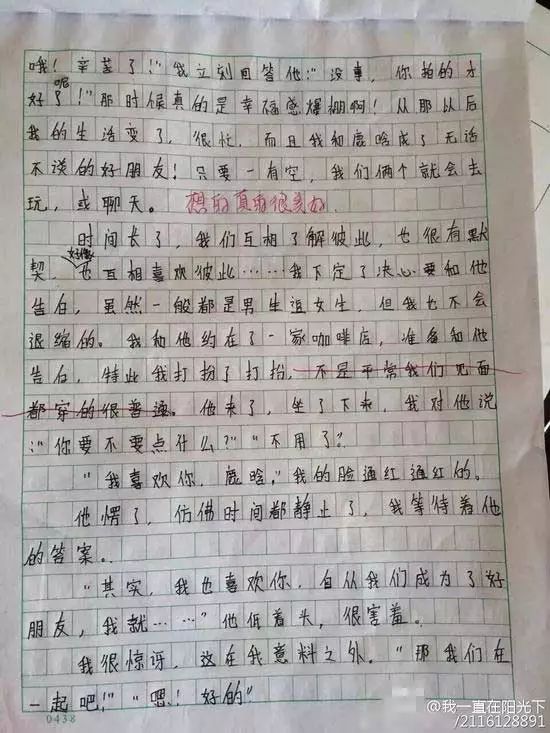 哦！辛苦了！”我立刻回答他：“没事，你拍的才
呢
好了！”那时候真的是幸福感爆棚啊！从那以后
我的生活变了，很忙，而且我和鹿晗成了无话
不说的好朋友！只要一有空，我们俩个就会去
玩，或聊天。想的真的很美好
时间长了，我们互相了解彼此，也很有默
好像
契，也互相喜欢彼此……我下定了决心要和他
告白，虽然一般都是男生追女生，但我也不会
退缩的。我和他约在了一家咖啡店，准备和他
告白，特此我打扮了打扮，不是平常我们见面
都穿的很普通。他来了，坐了下来，我对他说
：“你要不要点什么？”“不用了？
“我喜欢你，鹿晗。”我的脸通红通红的。
他愣了，仿佛时间都静止了，我等待着他
的答案。
“其实，我也喜欢你，自从我们成为了好
朋友，我就……”他低着头，很害羞。
我很惊讶，这在我意料之外。“那我们在
一起吧！”“嗯！好的”
0438
@我一直在阳光下
/2116128891